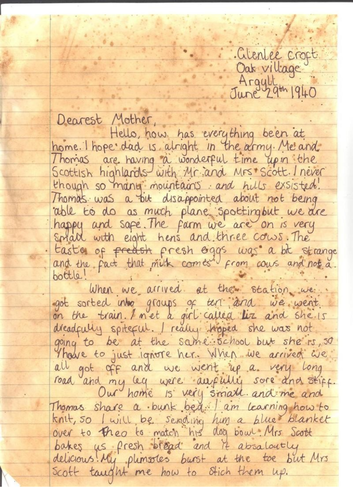 Glenlee Croft
Oak village
Argyll
June 29th 1940
Dearest Mother,
Hello, how has everything been at
home. I hope dad is alright in the army. Me and
Thomas are having a wonderful time up in the
Scottish highlands with Mr and Mrs Scott. I never
though so many mountains and hills exsisted!
Thomas was a bit disappointed about not being
able to do as much plane spotting but we are
happy and safe. The farm we are on is very
small with eight hens and three cows. The
taste of fresh eggs was a bit strange
and the fact that milk comes from cows and not a
bottle!
When we arrived at the station we
got sorted into groups of ten and we went
on the train. I met a girl called Liz and she is
dreadfully spiteful. I really hoped she was not
going to be at the same school but she is, so
I have to just ignore her. When we arrived we
all got off and we went up a very long
road and my leg were awfully sore and stiff.
Our home is very small and me and
Thomas share a bunk bed. I am learning how to
knit, so I will be sending him a blue blanket
over to Theo to match his dog bowl. Mrs Scott
bakes us fresh bread and it absaloutly
delicious! My plimsoles burst at the toe but Mrs
Scott taught me how to stich them up.